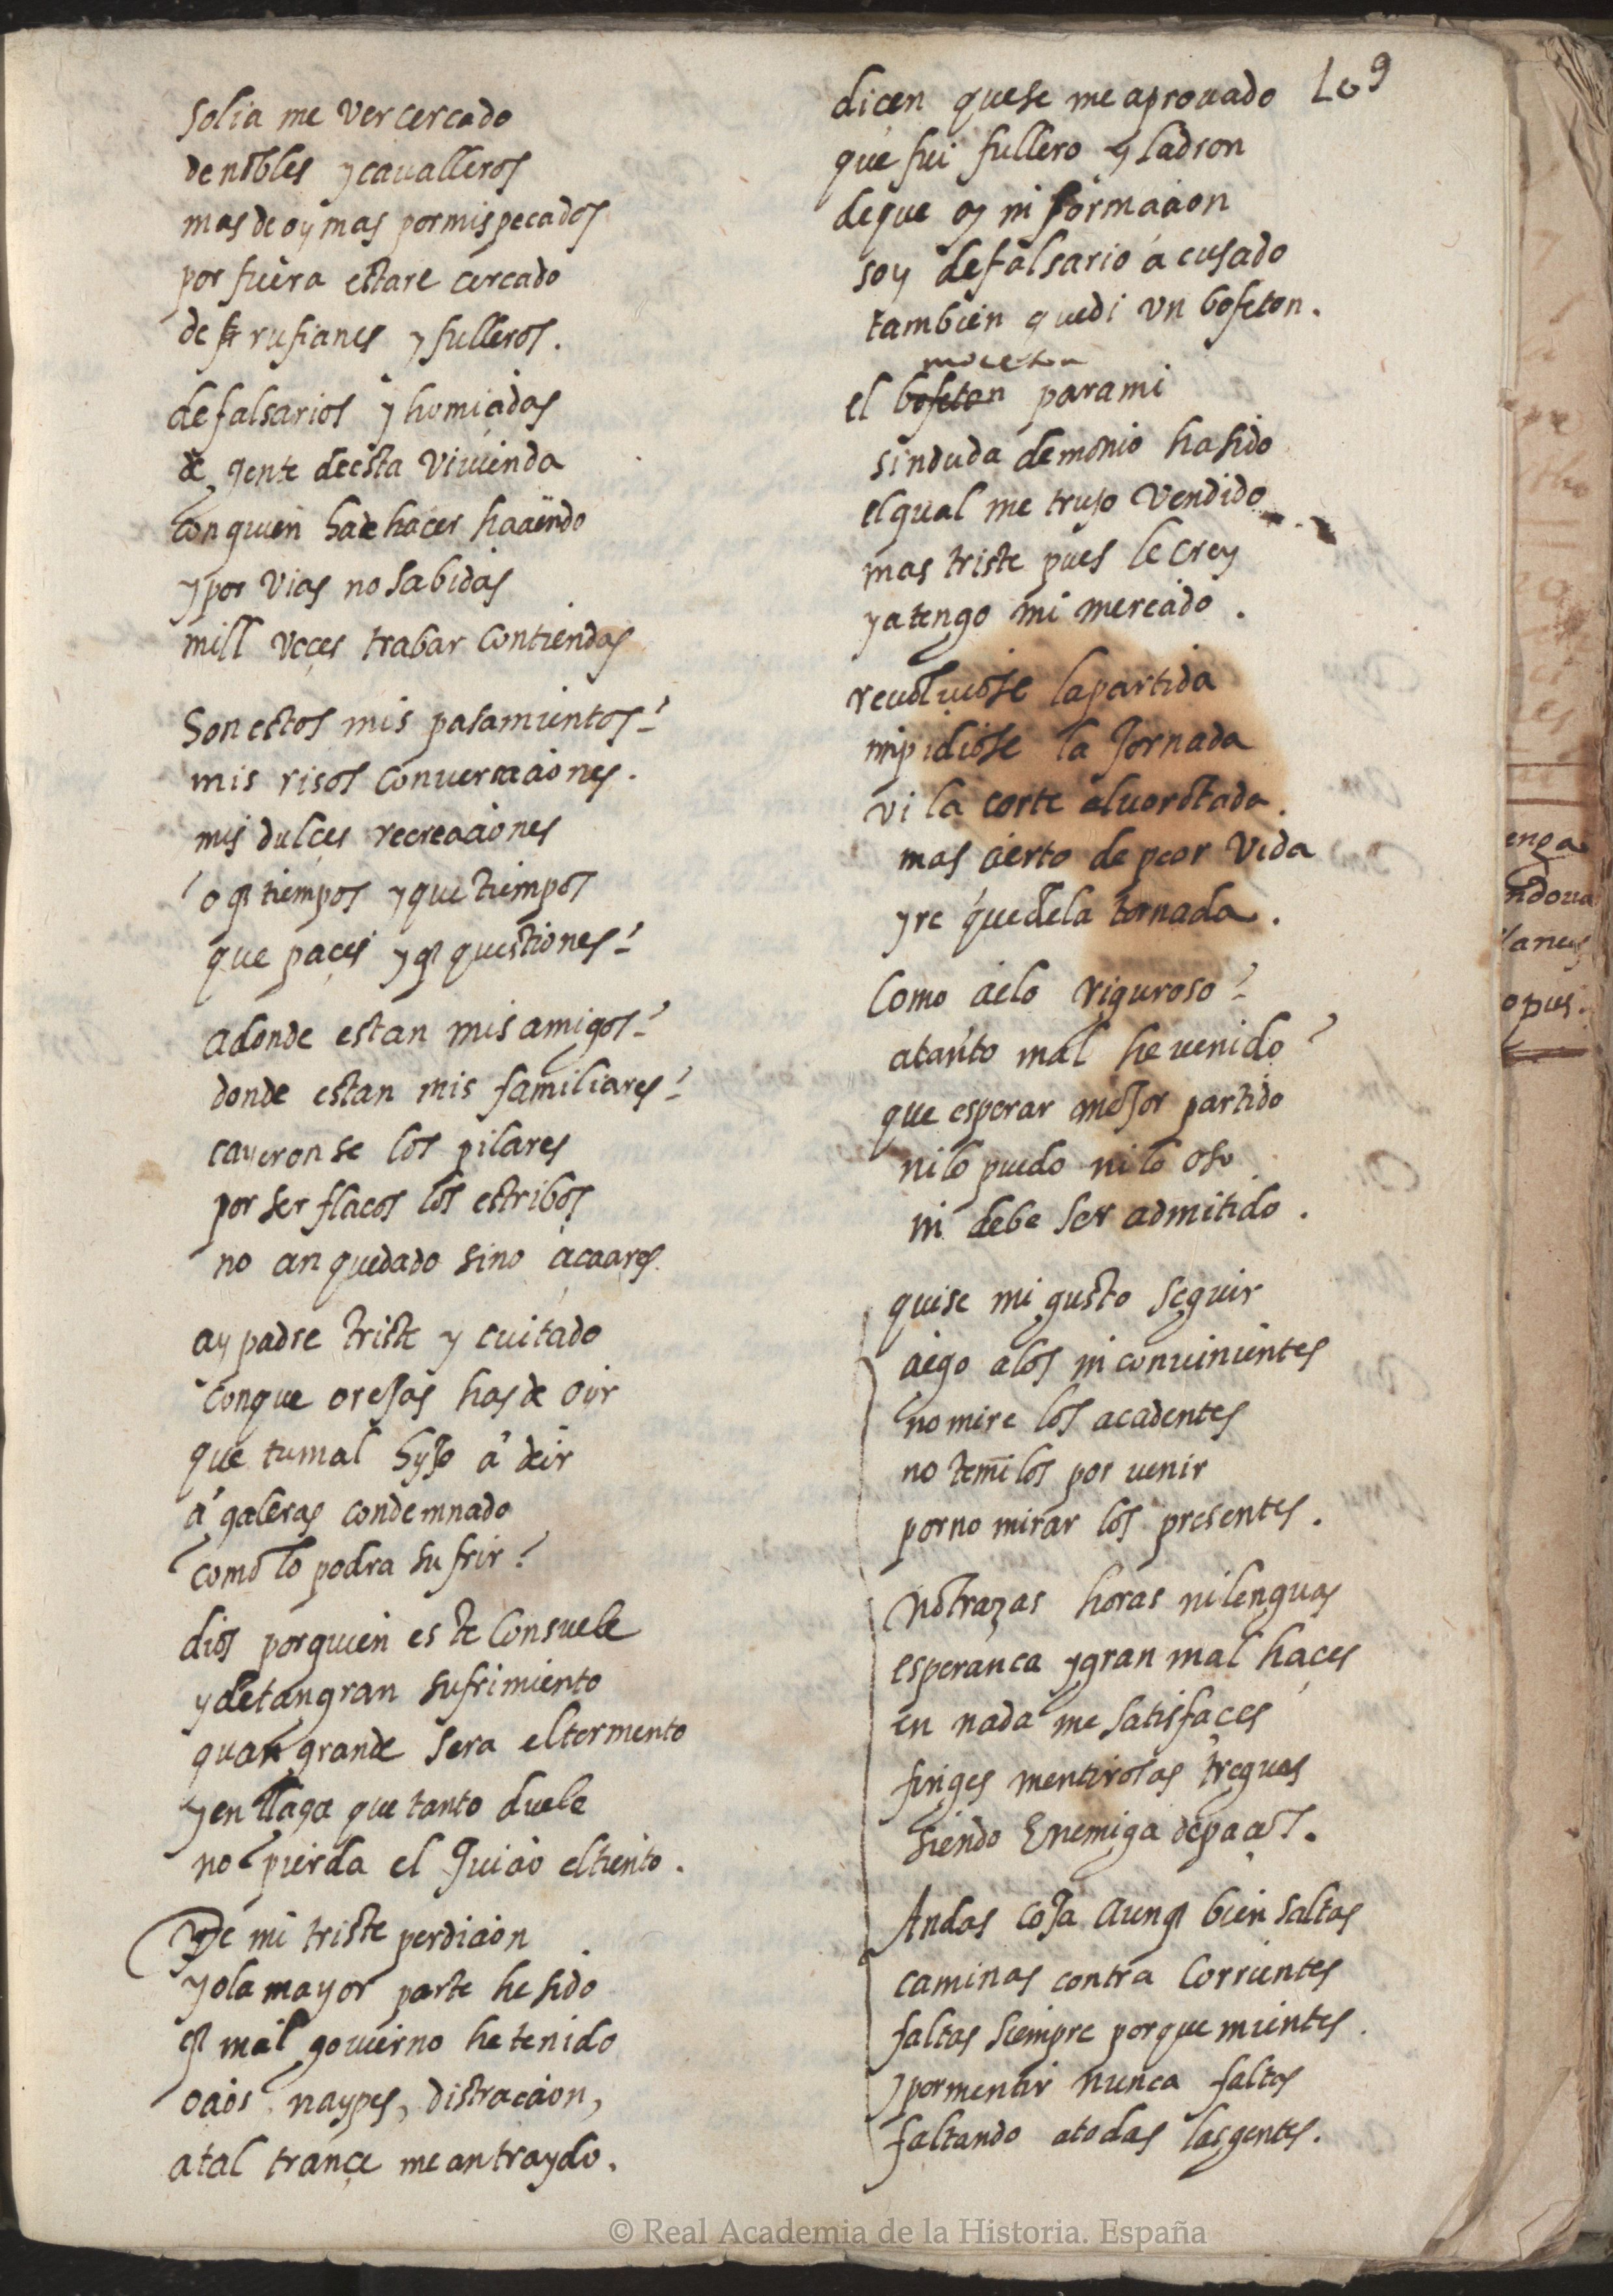 solia me ver cercado
de nobles y caualleros
mas de oy mas por mis pecados
por fuera estare cercado
de rufianes y fulleros.
de falsarios y homicidas
de gente de esta viuienda
con quien ha de hacer haciendo
y por vias no sabidas
mill veçes trabar contiendas
Son estos mis pasamientos?
mis risos conuersaciones.
mis dulçes recreaciones
o q̃ tiempos y que tiempos
que paçes y q̃ questiones?
adonde estan mis amigos?
donde estan mis familiares?
cayeronse los pilares
por ser flacos los estribos
no an quedado sino açicares
ay padre triste y cuitado
con que orejas has de oyr
que tu mal hyjo a de ir
a galeras condemnado
como lo podra sufrir?
dios por quien es te consuele
y de tan gran sufrimiento
quan grande sera el tormento
y en llaga que tanto duele
no pierda el Juicio el tiento.
De mi triste perdicion
yo la mayor parte he sido
q̃ mal gouierno he tenido
ocios naypes, distraccion,
a tal trançe me an traydo.
dicen que se me a prouado 169
que fui fullero y ladron
de que ay informacion
soy de falsario acusado
tambien que di vn bofeton.
moceton
el bofeton para mi
sin duda demonio ha sido
el qual me trujo vendido
mas triste pues le crey
ya tengo mi mereciado.
reuoluiose la partida
inpidiose la Jornada
vi la corte aluorotada.
mas cierto de peor vida
y re quedela tornada.
Como cielo riguroso?
a tanto mal he uenido?
que esperar mejor partido
ni lo puedo ni lo oso
ni debe ser admitido.
quise mi gusto seguir
ciego a los inconuinientes
no mire los accidentes
no temi los por uenir
por no mirar los presentes.
No trazas horas ni lenguas
esperanca y gran mal haçes
en nada me satisfaces
finges mentirosas treguas
siendo Enemiga de paces.
Andas coja aunq̃ bien saltas
caminas contra corrientes
faltas siempre porque mientes.
y por mentir nunca faltas
faltando a todas las gentes.
enga
ndoua
lanes
opus.
© Real Academia de la Historia. España